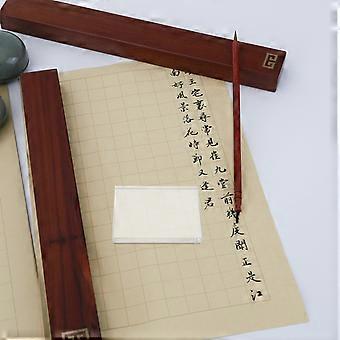 王宅裏尋常見崔九堂前幾度聞正是江
南好風景落花時節又逢君